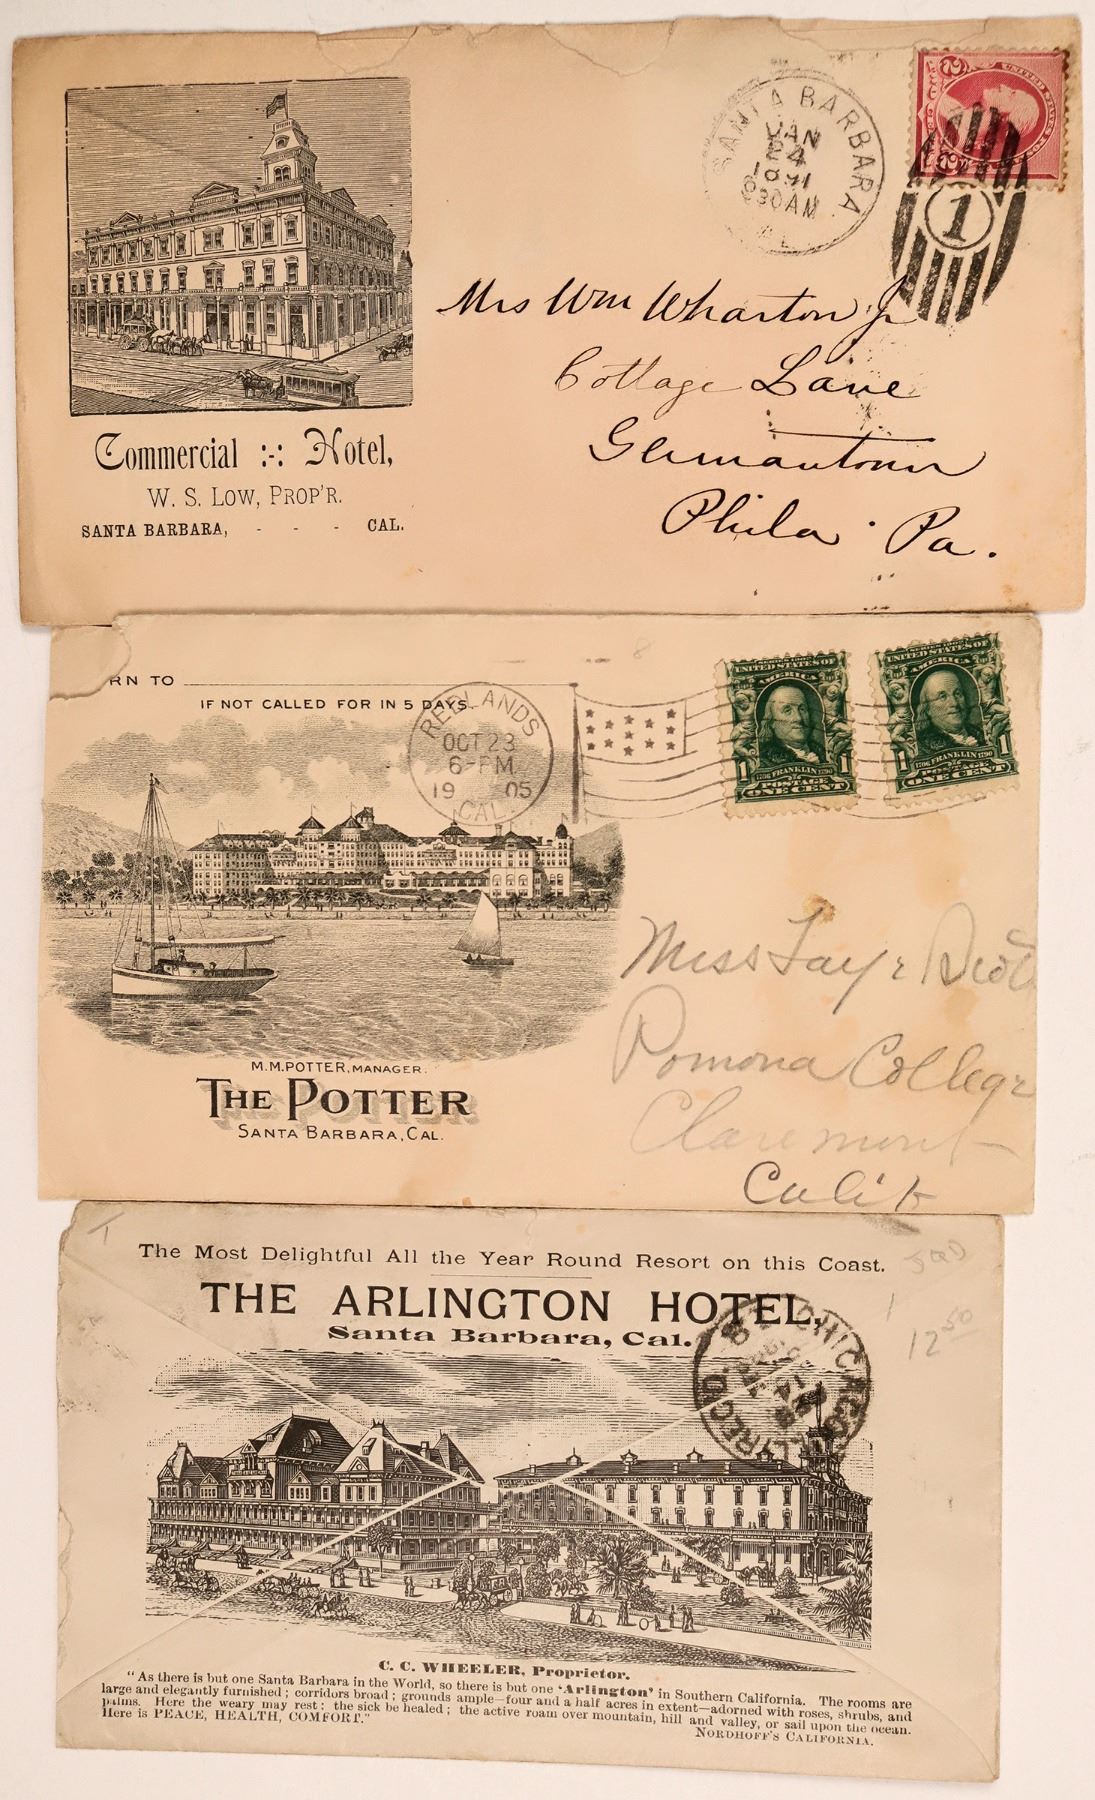 Commercial :-: Hotel,
W. S. LOW, PROP'R.
SANTA BARBARA, - - - CAL.
SANTA BARBARA
JAN
24
1891
630AM
CAL
UNITED STATES
1
Mrs Wm Wharton Jr
Cottage Lane
Germantown
Phila Pa.
RN TO
IF NOT CALLED FOR IN 5 DAYS.
REDLANDS
OCT 23
6-PM
19 05
CAL.
UNITED STATES OF
AMERICA
1 1
1706 FRANKLIN 1790
POSTAGE
ONE CENT
UNITED STATES OF
AMERICA
1 1
1706 FRANKLIN 1790
POSTAGE
ONE CENT
8
M.M. POTTER, MANAGER.
THE POTTER
SANTA BARBARA, CAL.
Miss Faye
Pomona College
Claremont
Calif
The Most Delightful All the Year Round Resort on this Coast.
THE ARLINGTON HOTEL,
Santa Barbara, Cal.
CHICAGO
REC'D.
14
12 50
C. C. WHEELER, Proprietor.
"As there is but one Santa Barbara in the World, so there is but one 'Arlington' in Southern California. The rooms are
large and elegantly furnished; corridors broad; grounds ample—four and a half acres in extent—adorned with roses, shrubs, and
palms. Here the weary may rest; the sick be healed; the active roam over mountain, hill and valley, or sail upon the ocean.
Here is PEACE, HEALTH, COMFORT."
NORDHOFF'S CALIFORNIA.